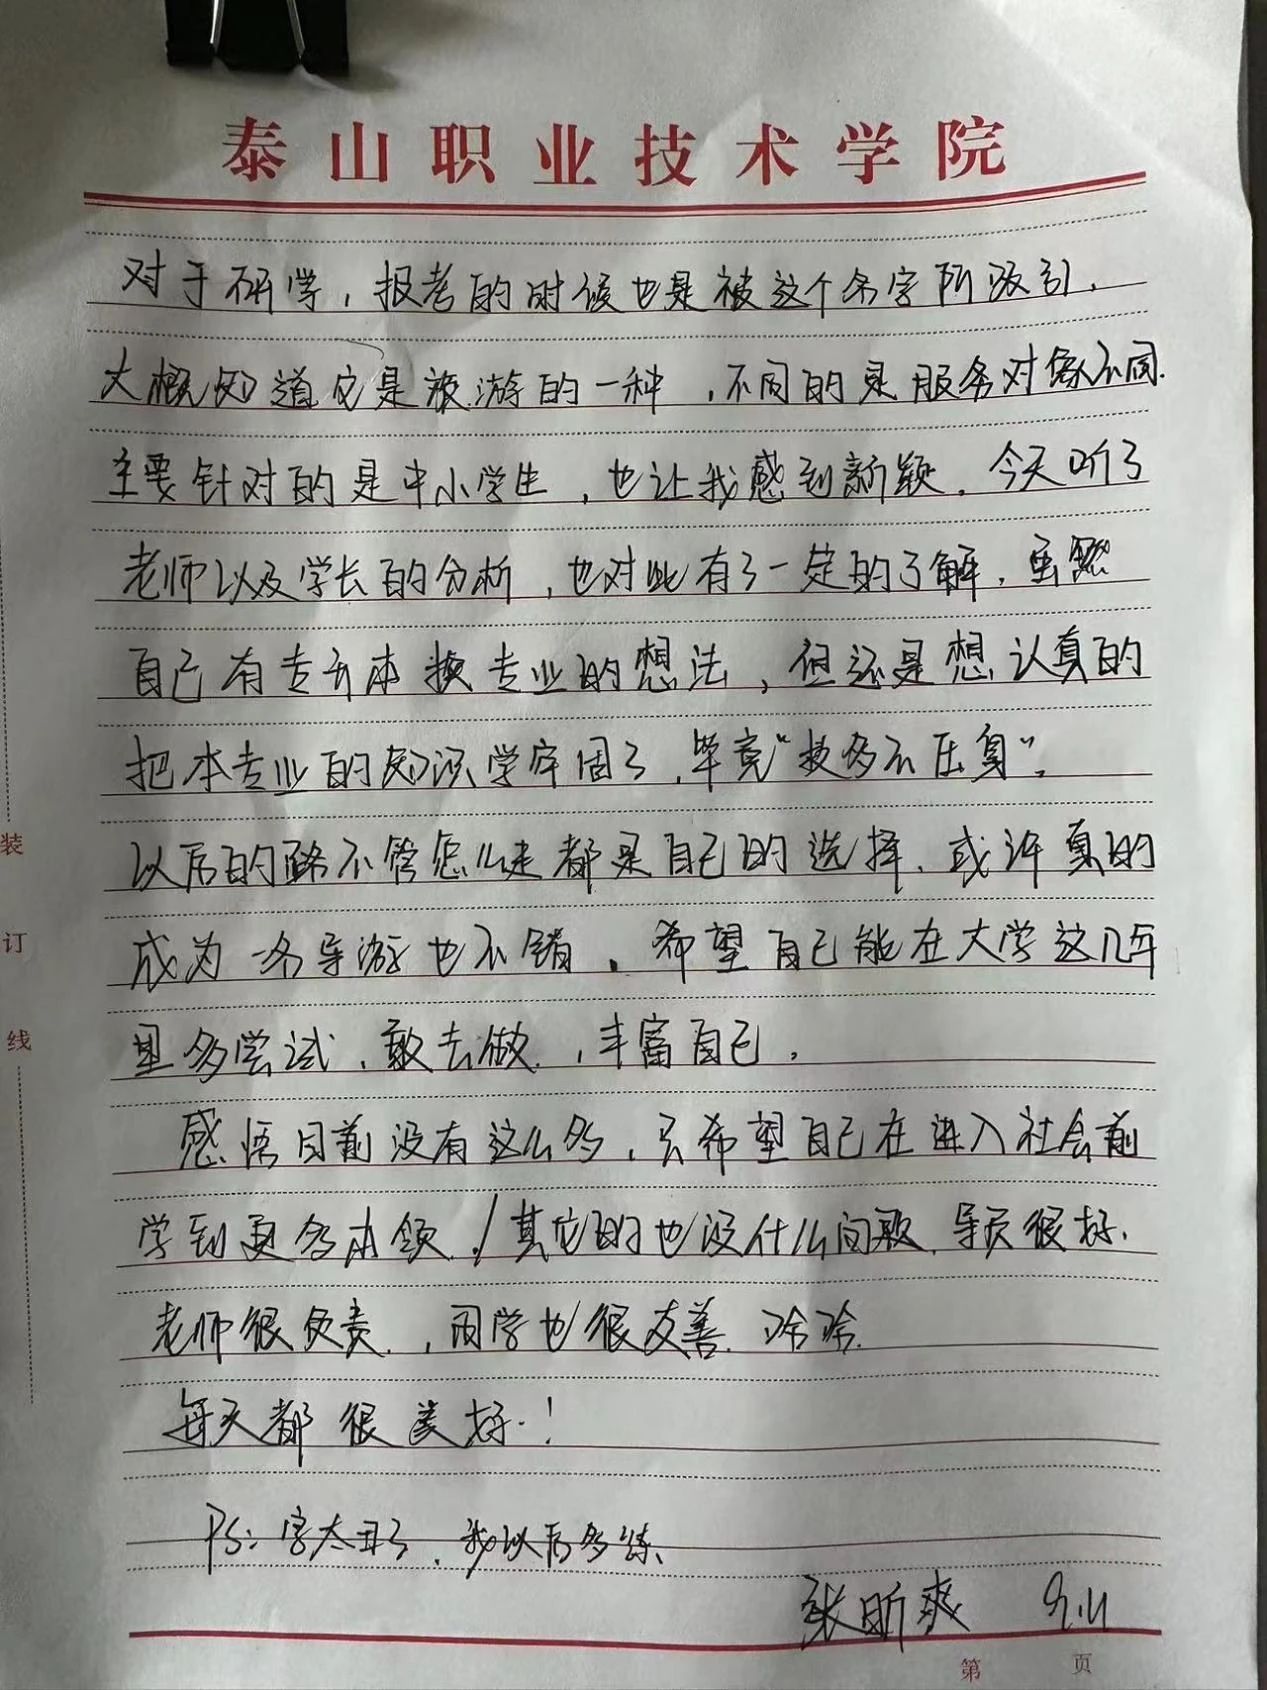 泰山职业技术学院
对于研学，报考的时候也是被这个名字所吸引．
大概知道它是旅游的一种，不同的是服务对像不同．
主要针对的是中小学生，也让我感到新颖．今天听了
老师以及学长的分析，也对此有了一定的了解．虽然
自己有专升本换专业的想法，但还是想认真的
把本专业的知识学牢固了．毕竟“技多不压身”。
以后的路不管怎么走都是自己的选择．或许真的
成为一名导游也不错．希望自己能在大学这几年
里多尝试．敢去做．，丰富自己．
感悟目前没有这么多．只希望自己在进入社会前
学到更多本领．/其它的也没什么问题．导员很好．
老师很负责．，同学也很友善．哈哈．
每天都很美好．！
PS：字太丑了．我以后多练．
张昕爽 9.11
第 页
装
订
线